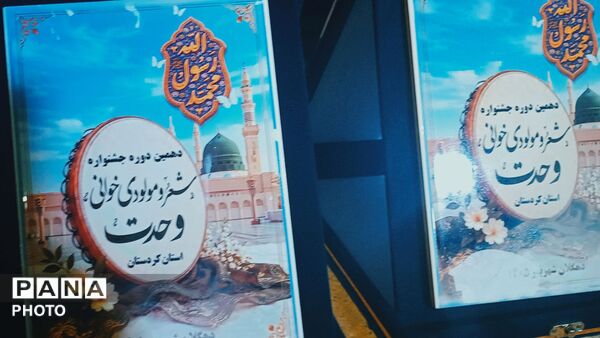 محمد رسول الله
دهمین دوره جشنواره
شعر و مولودی خوانی
وحدت
استان کردستان
دهگلان
محمد رسول الله
دهمین دوره جشنواره
شعر و مولودی خوانی
وحدت
استان کردستان
دهگلان شهریور ۱۴۰۵
PANA
PHOTO